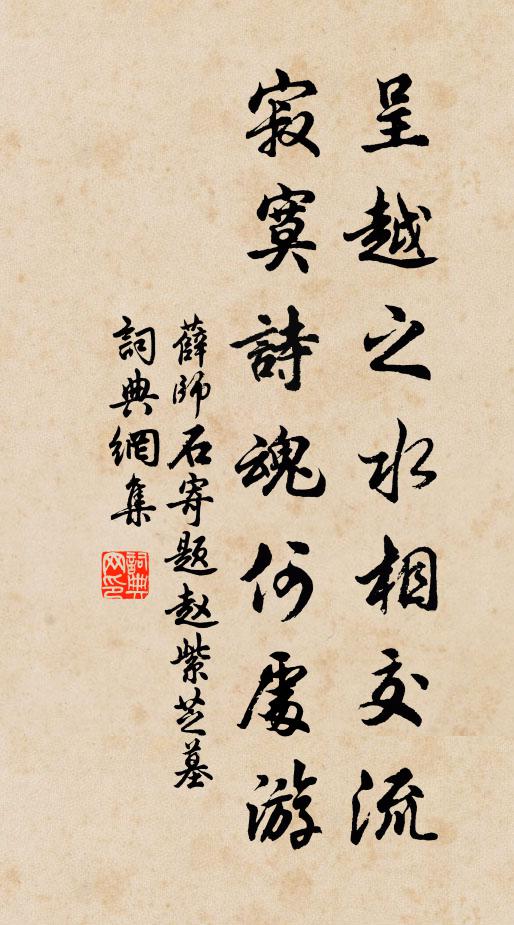 呈越之水相交流
寂寞詩魂何處游
薛師石寄题赵紫芝墓
詞典網集
詞典网印